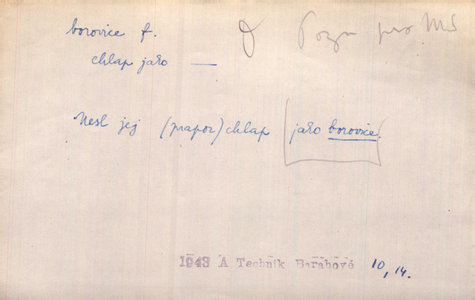 borovice f. Pozn pro MS
chlap jako —
Nesl jej (prapor) chlap jako borovice.
1943 A Technik Barabové 10, 14.